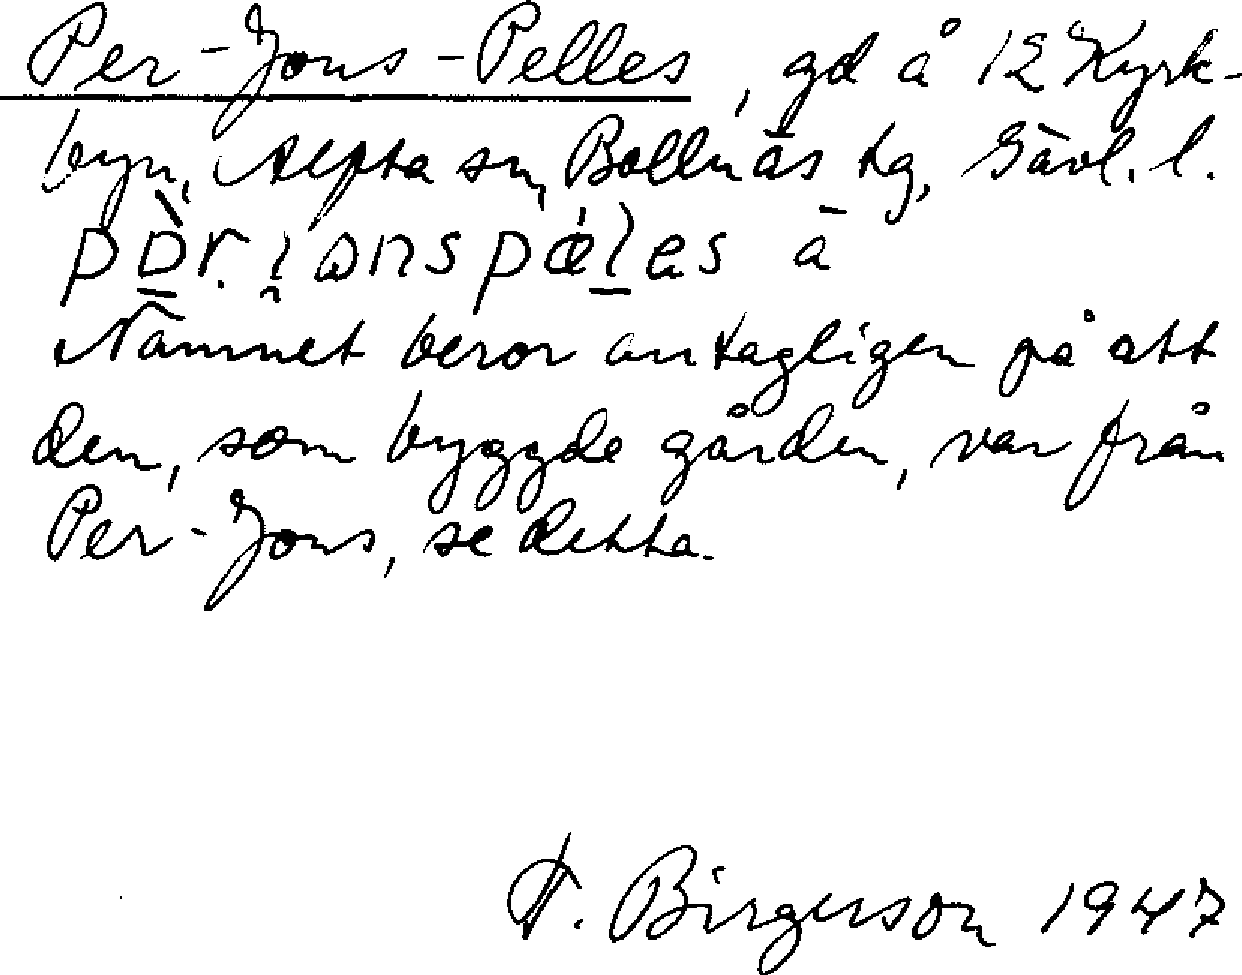 Per-Jons-Pelles, gd å 12 Kyrk-
byn, Alfta sn, Bollnäs tg, Gävl. l.
ā
Namnet beror antagligen på att
den, som byggde gården, var från
Per-Jons, se detta.
F. Birgerson 1947